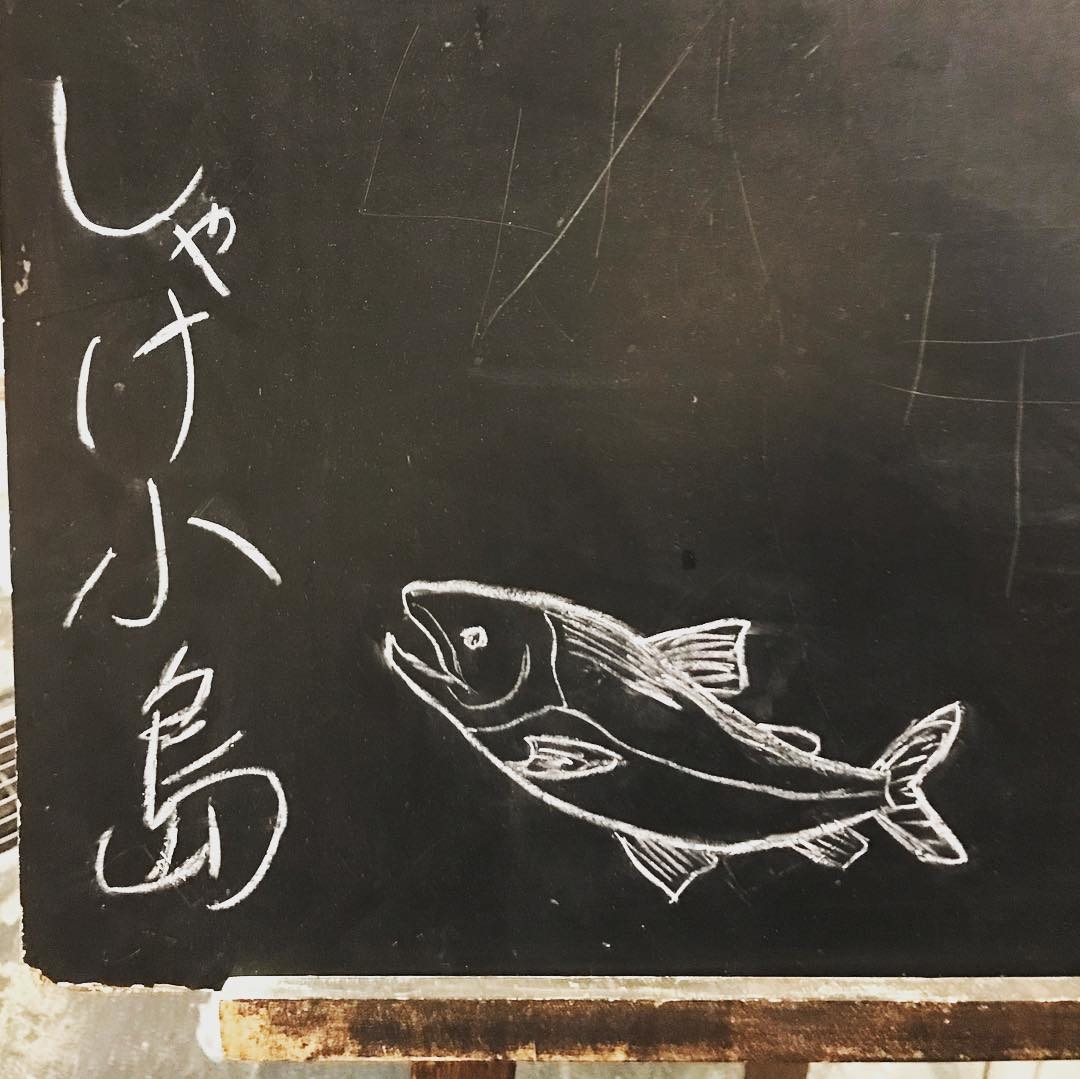 しゃけ小島